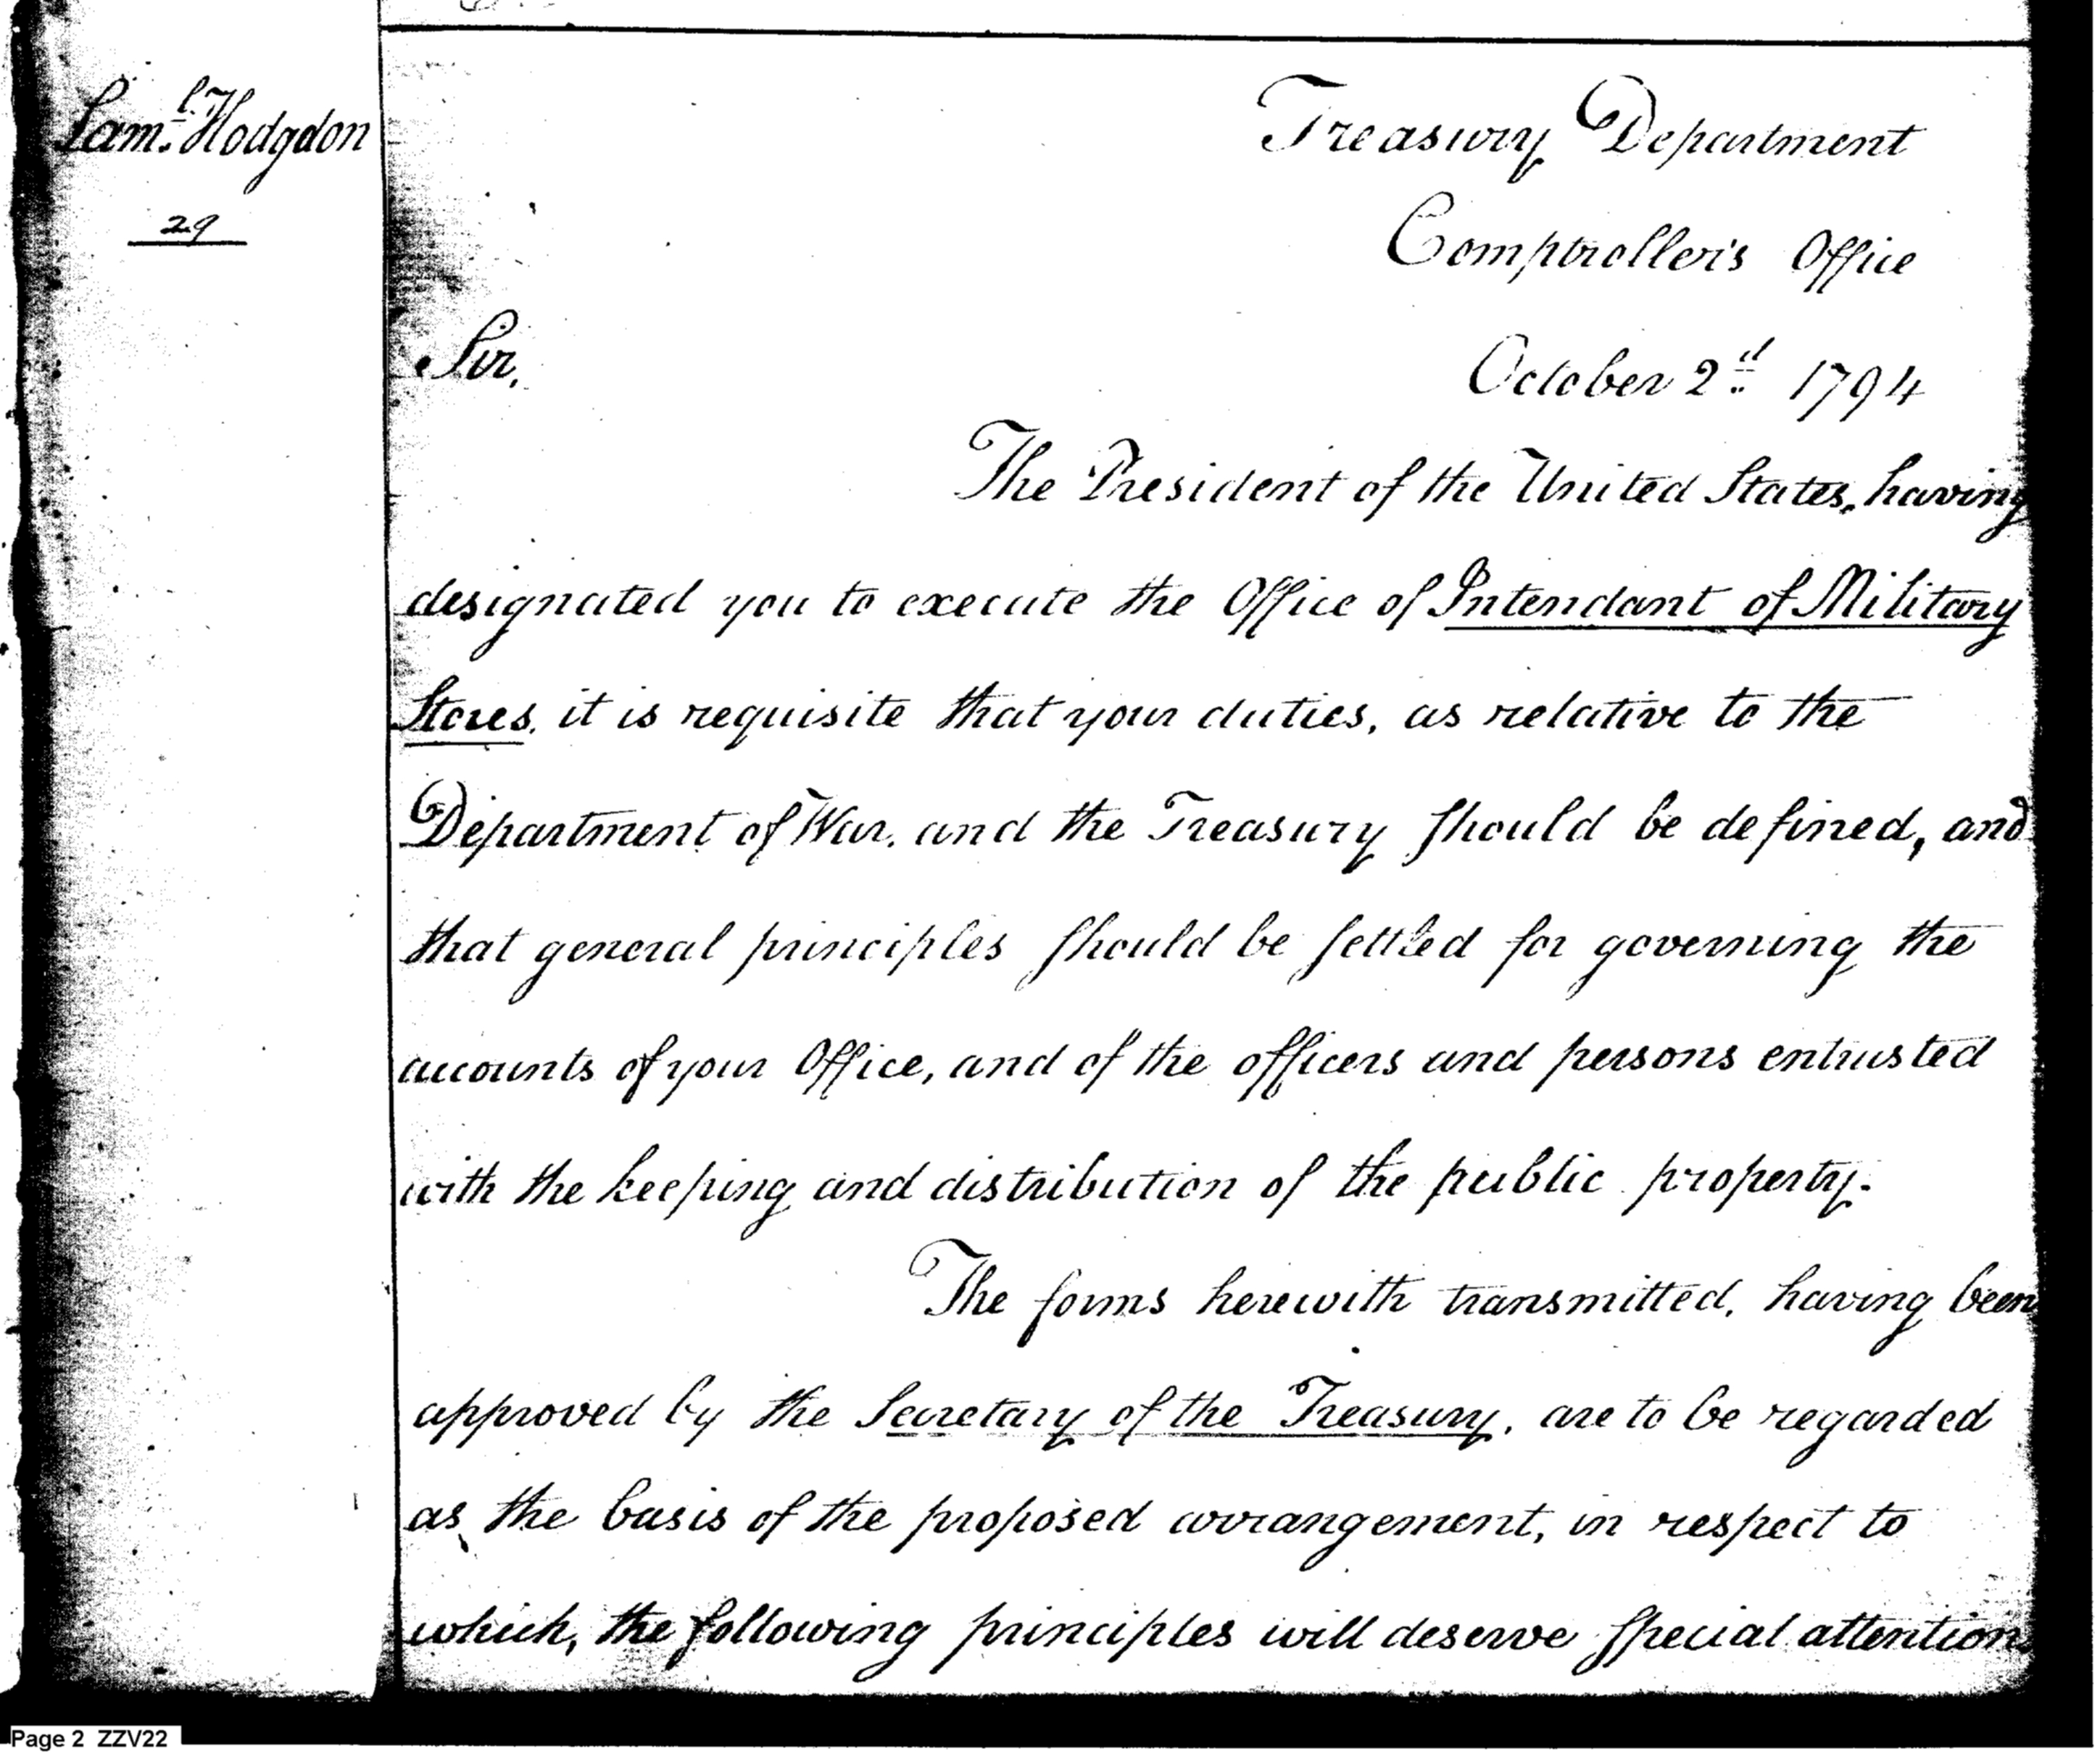 Sam.l Hodgdon
29
Treasury Department
Comptroller's Office
Sir,
October 2d 1794
The President of the United States, having
designated you to execute the Office of Intendant of Military
Stores, it is requisite that your duties, as relative to the
Department of War, and the Treasury should be defined, and
that general principles should be settled for governing the
accounts of your Office, and of the officers and persons entrusted
with the keeping and distribution of the public property.
The forms herewith transmitted, having been
approved by the Secretary of the Treasury, are to be regarded
as the basis of the proposed arrangement, in respect to
which, the following principles will deserve special attention
Page 2 ZZV22